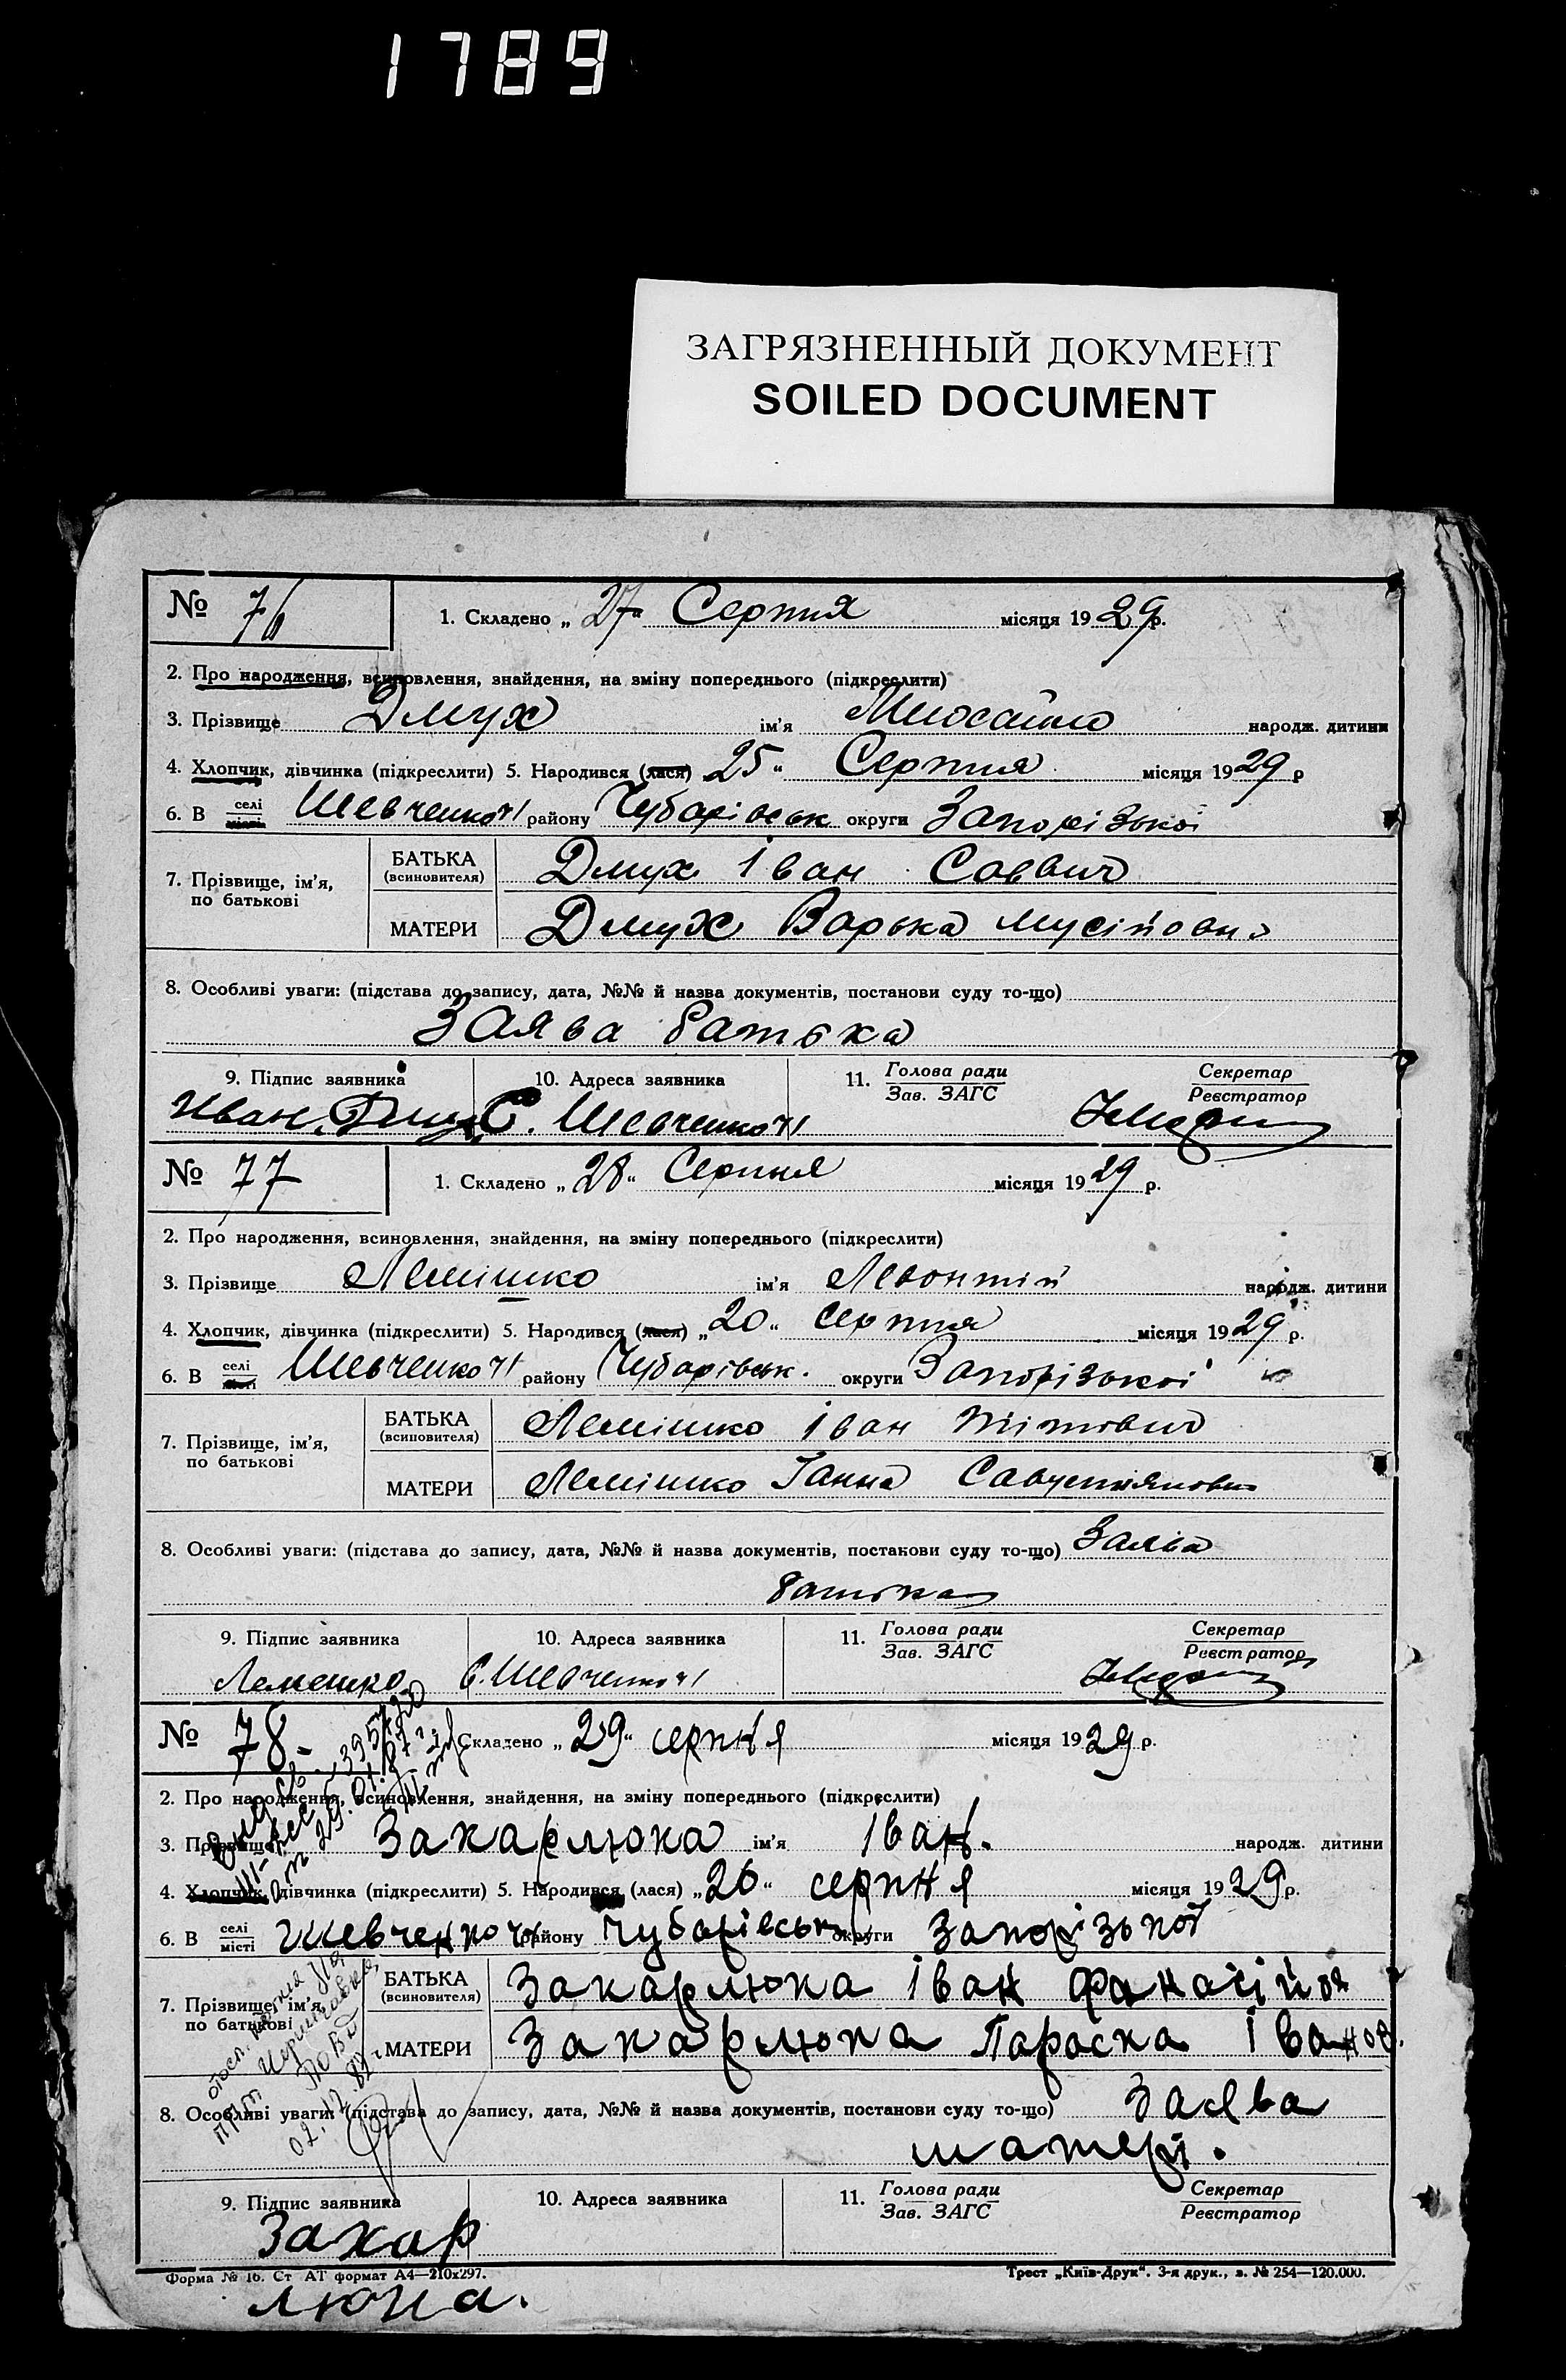 1789
ЗАГРЯЗНЕННЫЙ ДОКУМЕНТ
SOILED DOCUMENT
№ 76 1. Складено „ 27 “ Серпня місяця 1929 р.
2. Про народження, всиновлення, знайдення, на зміну попереднього (підкреслити)
3. Прізвище Дмух ім'я Михайло народж. дитини
4. Хлопчик, дівчинка (підкреслити) 5. Народився (лася) 25 “ Серпня місяця 1929 р
6. В селі місті Шевченко района Чубарівськ округи Запорізької
7. Прізвище, ім'я, по батькові
БАТЬКА (всиновителя) Дмух Іван Саввич
МАТЕРИ Дмух Варька Мусіївн
8. Особливі уваги: (підстава до запису, дата, №№ й назва документів, постанови суду то-що)
Заява батька
9. Підпис заявника 10. Адреса заявника 11. Голова ради Зав. ЗАГС Секретар Реєстратор
Иван Дмух С. Шевченко
№ 77 1. Складено „ 28 “ Серпня місяця 1929 р.
2. Про народження, всиновлення, знайдення, на зміну попереднього (підкреслити)
3. Прізвище Лемішко ім'я Левонтій народж. дитини
4. Хлопчик, дівчинка (підкреслити) 5. Народився (лася) „ 20 “ Серпня місяця 1929 р.
6. В селі місті Шевченко району Чубарівськ. округи Запорізької
7. Прізвище, ім'я, по батькові
БАТЬКА (всиновителя) Лемішко Іван Тітович
МАТЕРИ Лемішко Ганна
8. Особливі уваги: (підстава до запису, дата, №№ й назва документів, постанови суду то-що) Заява
батька
9. Підпис заявника 10. Адреса заявника 11. Голова ради Зав. ЗАГС Секретар Реєстратор
Лемешко С. Шевченко
№ 78 Складено „ 29 “ серпня місяця 1929 р.
2. Про народження, всиновлення, знайдення, на зміну попереднього (підкреслити)
3. Прізвище Закарлюка ім'я Іван. народж. дитини
4. Хлопчик, дівчинка (підкреслити) 5. Народився (лася) „ 26 “ серпня місяця 1929 р.
6. В селі місті Шевченко району Чубарівськ округи Запорізької
7. Прізвище, ім'я, по батькові
БАТЬКА (всиновителя) Закарлюка Іван
МАТЕРИ Закарлюка Параска Іванов.
02.12.87
8. Особливі уваги: (підстава до запису, дата, №№ й назва документів, постанови суду то-що) Заява
матері.
9. Підпис заявника 10. Адреса заявника 11. Голова ради Зав. ЗАГС Секретар Реєстратор
Закар
Форма № 16. Ст АТ формат А4—210х297. Трест „Київ-Друк“. 3-я друк., з. № 254—120.000.
люка.